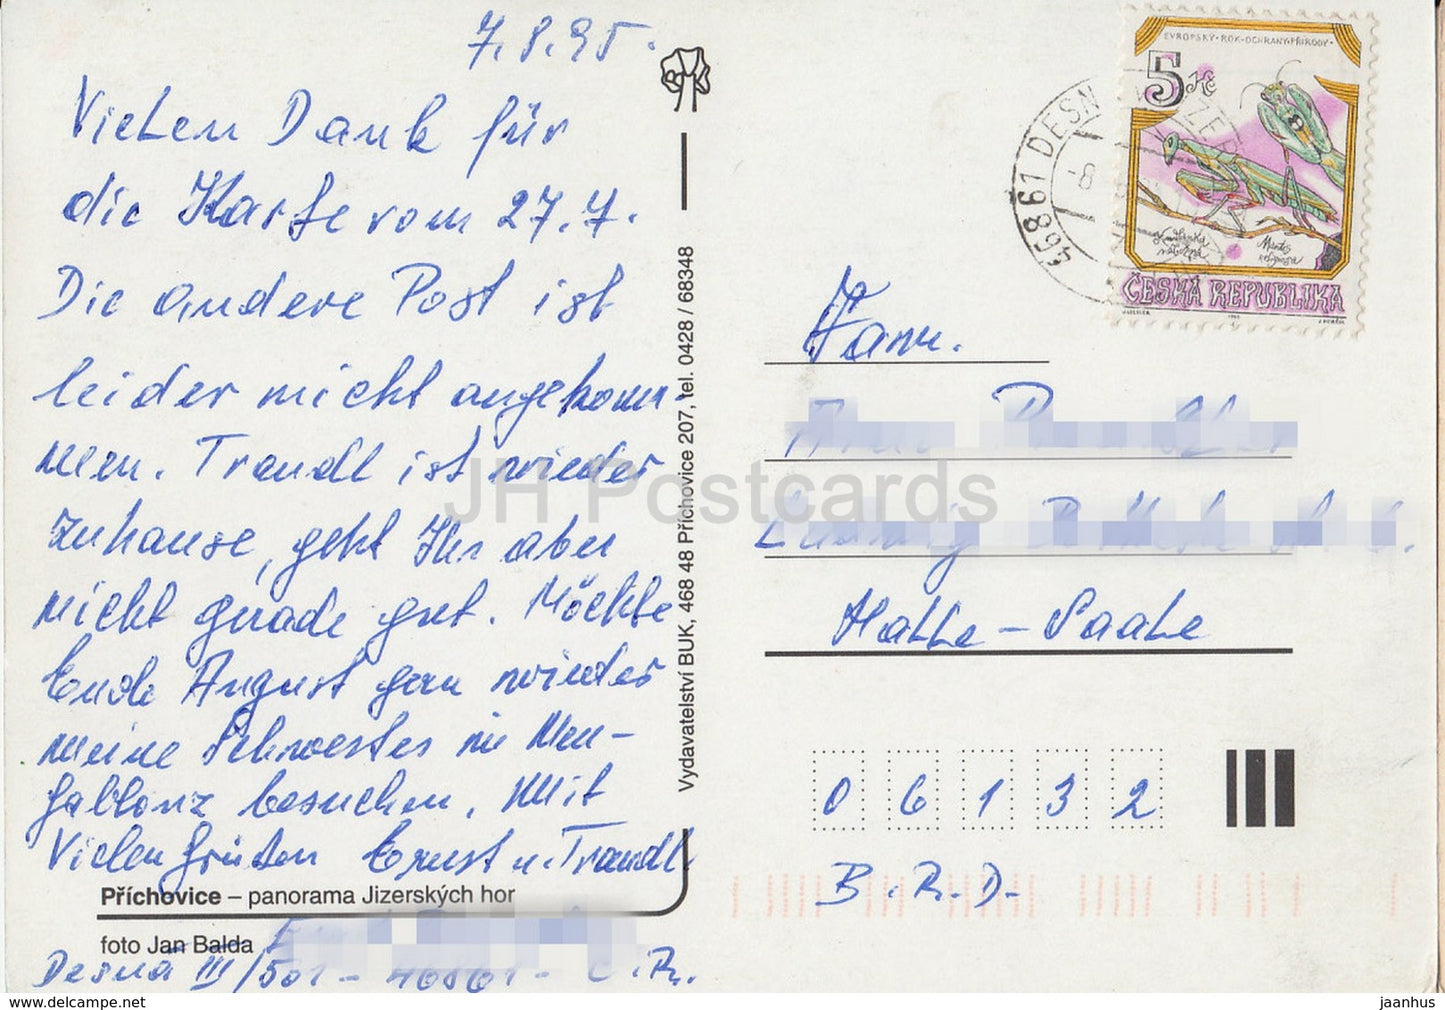 7.8.95.
Vielen Dank für
die Karte vom 27.7.
Die andere Post ist
leider nicht angekom-
men. Traudl ist wieder
Zuhause, geht Ihr aber
nicht gerade gut. Möchte
Ende August gern wieder
meine Schwester in Neu-
gablonz besuchen. Mit
Vielen Grüßen Ernst u. Traudl.
Příchovice – panorama Jizerských hor
foto Jan Balda
Desná III/501 - 46861 - Č.R.
Vydavatelství BUK, 468 48 Příchovice 207, tel. 0428 / 68348
EVROPSKÝ·ROK·OCHRANY·PŘÍRODY·
5 Kč
Kudlanka nábožná
Mantis religiosa
ČESKÁ REPUBLIKA
468 61 DESN
-8
Fam.
Halle - Saale
06132
B.R.D.
JH Postcards
https://www.delcampe.net
jaanhus